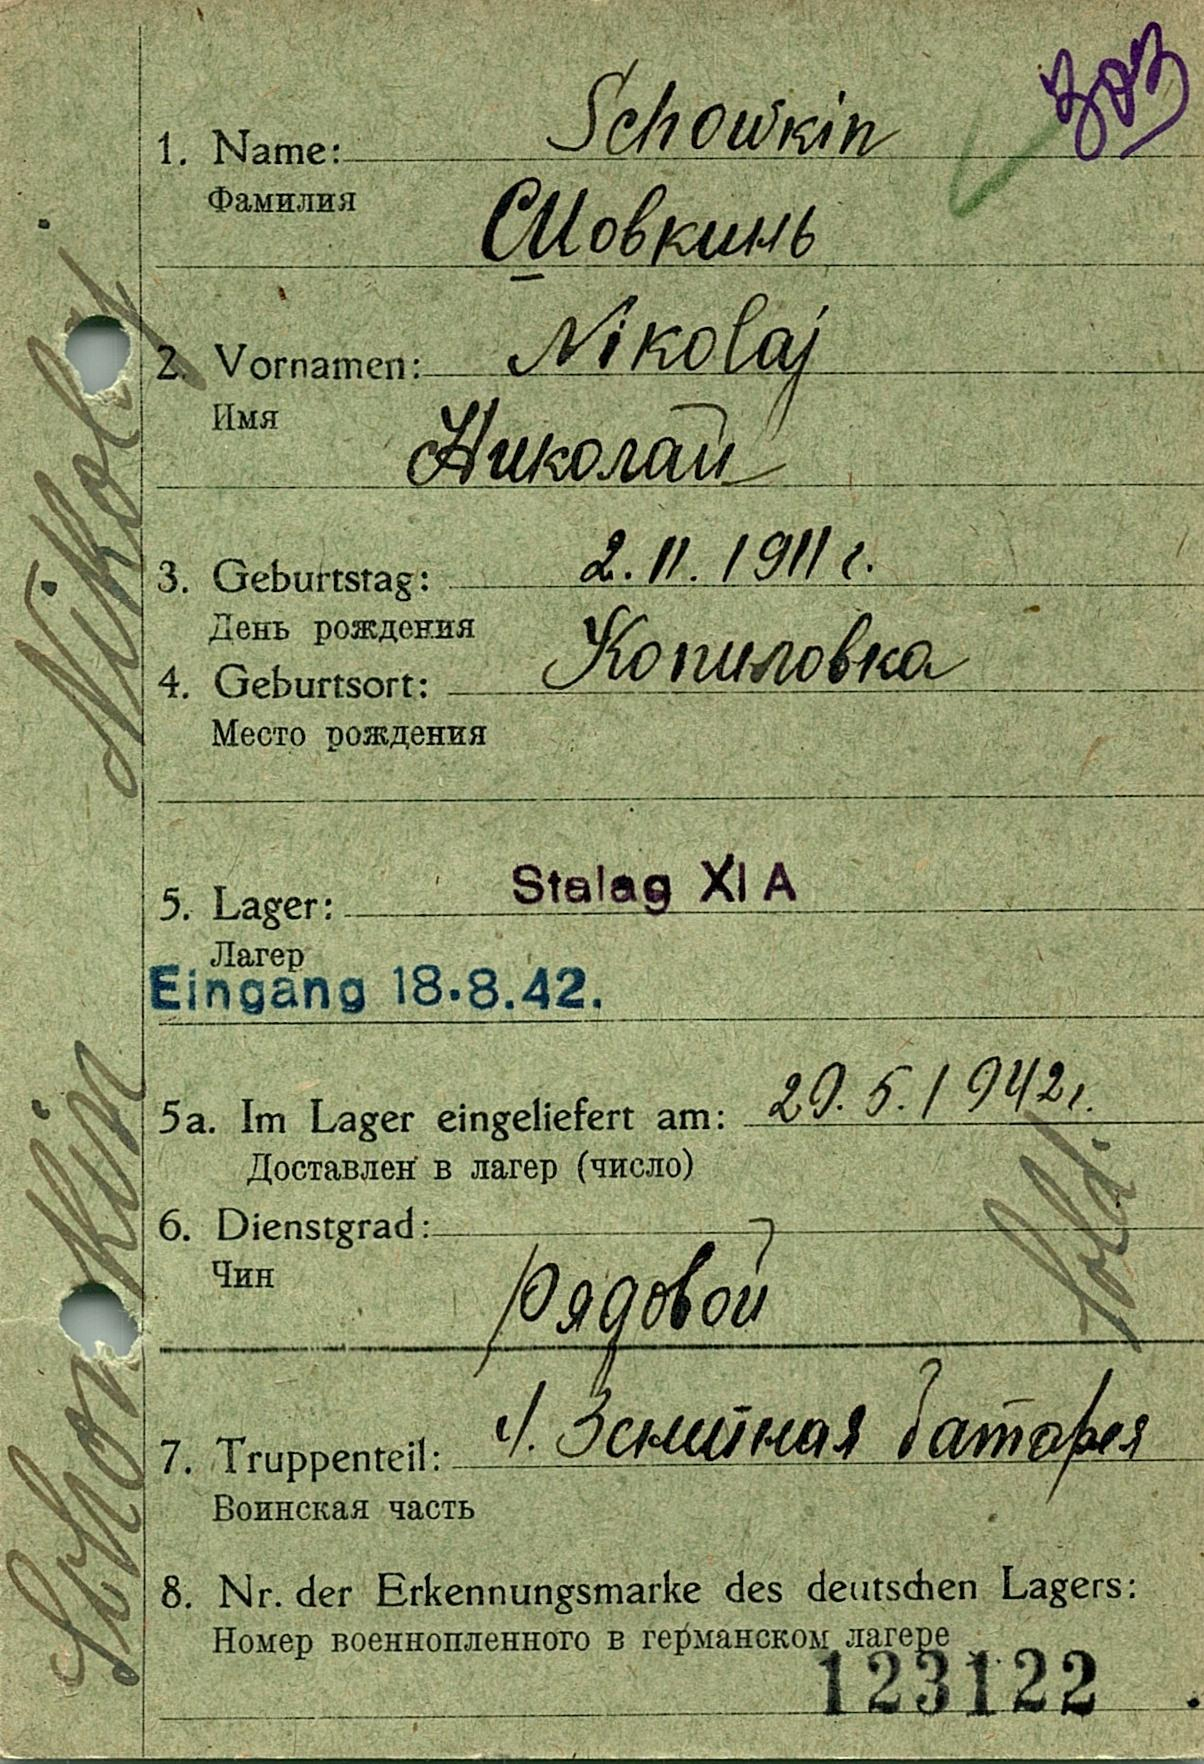 1. Name: Schowkin
Фамилия
СШовкинь
2. Vornamen: Nikolaj
Имя
Николай
3. Geburtstag: 2.11.1911 г.
День рождения
4. Geburtsort: Копиловка
Место рождения
5. Lager: Stalag XI A
Лагер
Eingang 18.8.42.
5a. Im Lager eingeliefert am: 29.5.1942 г.
Доставлен в лагер (число)
6. Dienstgrad:
Чин
Рядовой
Sold.
7. Truppenteil: Зенитная батарея
Воинская часть
8. Nr. der Erkennungsmarke des deutschen Lagers:
Номер военнопленного в германском лагере
123122
Schowkin Nikolaj